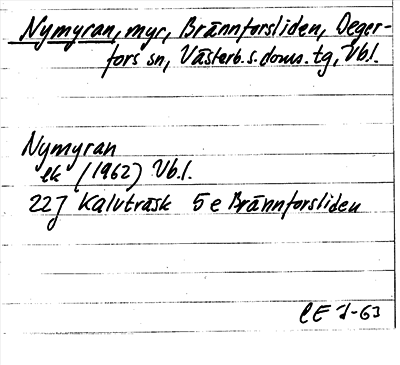 Nymyran, myr, Brännforsliden, Deger-
fors sn, Västerb. s. doms. tg, Vb.l.
Nymyran
ek (1962) Vb.l.
22J Kalvträsk 5e Brännforsliden
CE J-63